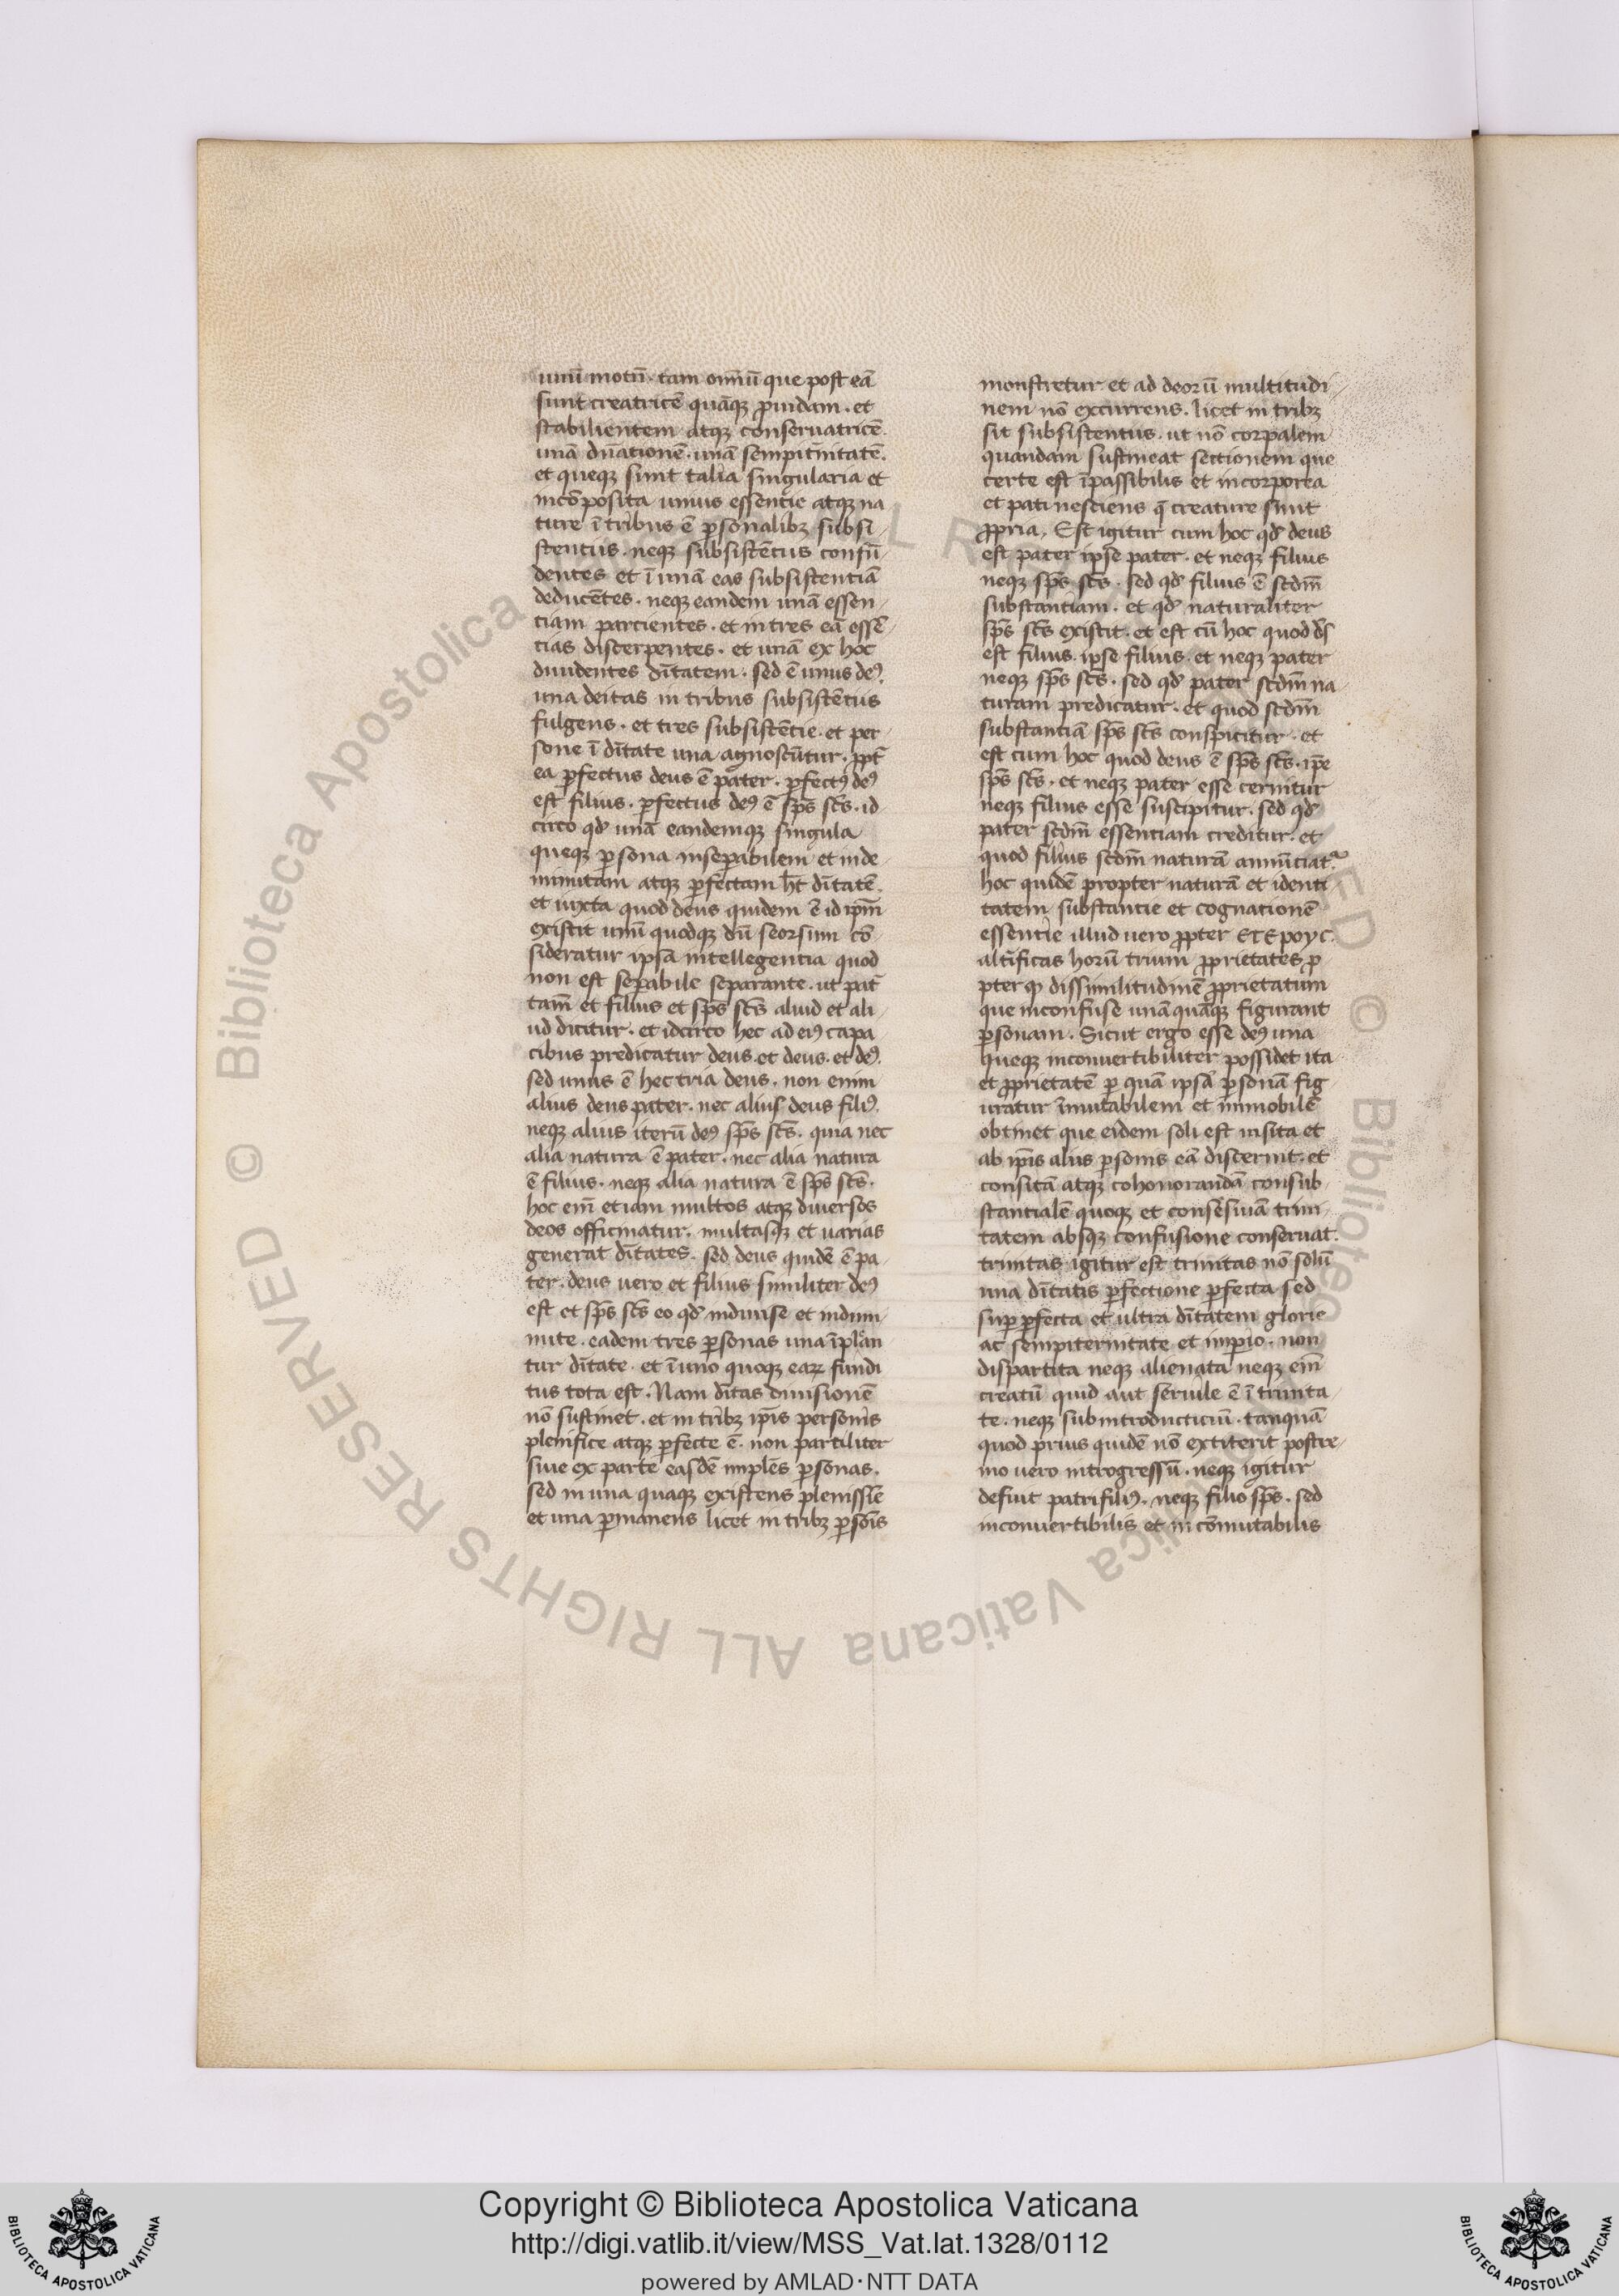 unū motū. tam omīū que post eā
sunt creatricē quāqꝫ ꝓuidam. et
stabilientem atqꝫ conseruatricē.
unā dn̄ationē. unā sempit̄nitatē.
et queqꝫ sunt talia singularia et
incōposita unius essentie atqꝫ na
ture ī tribus ē ꝑsonalibꝫ subsi-
stentiis. neqꝫ subsistētiis confū-
dentes et ī unā eas subsistentiā
deducētes. neqꝫ eandem unā essen-
tiam parcientes. et in tres eā essē-
tias discerpentes. et unā ex hoc
diuidentes dītatem. sed ē unus deꝰ.
una deitas in tribus subsistētiis
fulgens. et tres subsistētie. et per-
sone ī dītate una agnoscūtur. ꝓpt̄
ea ꝑfectus deus ē pater. ꝑfectꝰ deꝰ
est filius. ꝑfectus deꝰ ē sp̄s sc̄s. id-
circo qd̓ unā eandemqꝫ singula
queqꝫ ꝑsona insepabilem et inde-
minutam atqꝫ ꝑfectam h̄t dītatē.
et iuxta quod deus quidem ē id ip̄m
existit unū quodqꝫ dū seorsum cō-
sideratur ipsa intellegentia quod
non est sepabile separante. ut pat̄
tam̄ et filius et sp̄s sc̄s aliud et ali-
ud dicitur. et idcirco hec ad eiꝰ capa-
cibus predicatur deus. et deus. et deꝰ.
sed unus ē hec tria deus. non enim
alius deus pater. nec alius deus filiꝰ.
neqꝫ alius iterū deꝰ sp̄s sc̄s. quia nec
alia natura ē pater. nec alia natura
ē filius. neqꝫ alia natura ē sp̄s sc̄s.
hoc em̄ etiam multos atqꝫ diuersos
deos officinatur. multasqꝫ et uarias
generat dītates. sed deus quidē ē pa-
ter. deus uero et filius similiter deꝰ
est et sp̄s sc̄s eo qd̓ indiuise et indimi-
nute. eadem tres ꝑsonas una īplan
tur dītate. et ī uno quoqꝫ eaꝝ fundi
tus tota est. Nam dītas diuisionē
nō sustinet. et in tribꝫ ip̄is personis
plenifice atqꝫ ꝑfecte ē. non partiliter
siue ex parte easdē implēs ꝑsonas.
sed in una quaqꝫ existens plenissīe
et una ꝑmanens licet in tribꝫ ꝑsōis
monstretur et ad deorū multitudi-
nem nō excurrens. licet in tribꝫ
sit subsistentiis. ut nō corpalem
quandam sustineat sectionem que
certe est īpassibilis et incorporea
et pati nesciens q̄ creature sunt
ꝓpria. Est igitur cum hoc qd̓ deus
est pater ipse pater. et neqꝫ filius
neqꝫ sp̄s sc̄s. sed qd̓ filius ē scdm̄
substantiam. et qd̓ naturaliter
sp̄s sc̄s existit. et est cū hoc quod ds̄
est filius. ipse filius. et neqꝫ pater
neqꝫ sp̄s sc̄s. sed qd̓ pater scdm̄ na-
turam predicatur. et quod scdm̄
substantiā sp̄s sc̄s conspicitur. et
est cum hoc quod deus ē sp̄s sc̄s. ip̄e
sp̄s sc̄s. et neqꝫ pater esse cernitur
neqꝫ filius esse suscipitur. sed qd̓
pater scdm̄ essentiam creditur. et
quod filius scdm̄ naturā annūciat᷑.
hoc quidē propter naturā et identi-
tatem substantie et cognationē
essentie illud uero ꝓpter ετεροyc.
alt̄ificas horū trium ꝓprietates ꝓ
pter qꝫ dissimilitudinē ꝓprietatum
que inconfuse unā quāqꝫ figurant
ꝑsonam. Sicut ergo esse deꝰ una
queqꝫ inconuertibiliter possidet ita
et ꝓprietatē ꝑ quā ipsā ꝑsonā fig-
uratur īmutabilem et immobilē
obtinet que eidem soli est insita et
ab ip̄is aliis ꝑsonis eā discernit. et
consitā atqꝫ cohonorandā consub-
stantialē quoqꝫ et consēsiuā trini-
tatem absqꝫ confusione conseruat.
trinitas igitur est trinitas nō solū
una dītatis ꝑfectione ꝑfecta sed
suꝑ ꝑfecta et ultra dītatem glorie
ac sempiternitate et imꝑio. non
dispartita neqꝫ alienata neqꝫ em̄
creatū quid aut seruile ē ī trinita-
te. neqꝫ subintroducticiū. tanquā
quod prius quidē nō extiterit postre-
mo uero introgressū. neqꝫ igitur
defuit patri filiꝰ. neqꝫ filio sp̄s. sed
inconuertibilis et in cōmutabilis
© Biblioteca Apostolica Vaticana ALL RIGHTS RESERVED
Copyright © Biblioteca Apostolica Vaticana
http://digi.vatlib.it/view/MSS_Vat.lat.1328/0112
powered by AMLAD·NTT DATA
BIBLIOTECA APOSTOLICA VATICANA
BIBLIOTECA APOSTOLICA VATICANA